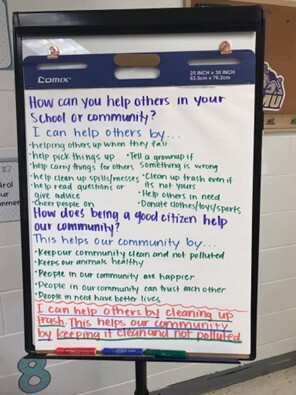 COMIX
25 INCH x 30 INCH
63.5cm x 76.2cm
MU
How can you help others in your
School or community?
I can help others by...
•helping others up when they fall
•help pick things up •Tell a grownup if
•help carry things for others Something is wrong
•help clean up spills/messes •Clean up trash even if
•help read questions or its not yours
give advice •Help others in need
•Cheer people on •Donate clothes/toys/sports
How does being a good citizen help
our community?
This helps our community by...
•Keep our community clean and not polluted
•Keeps our animals healthy
•People in our community are happier
•People in our community can trust each other
•People in need have better lives
I can help others by cleaning up
trash. This helps our community
by keeping it clean and not polluted.
8